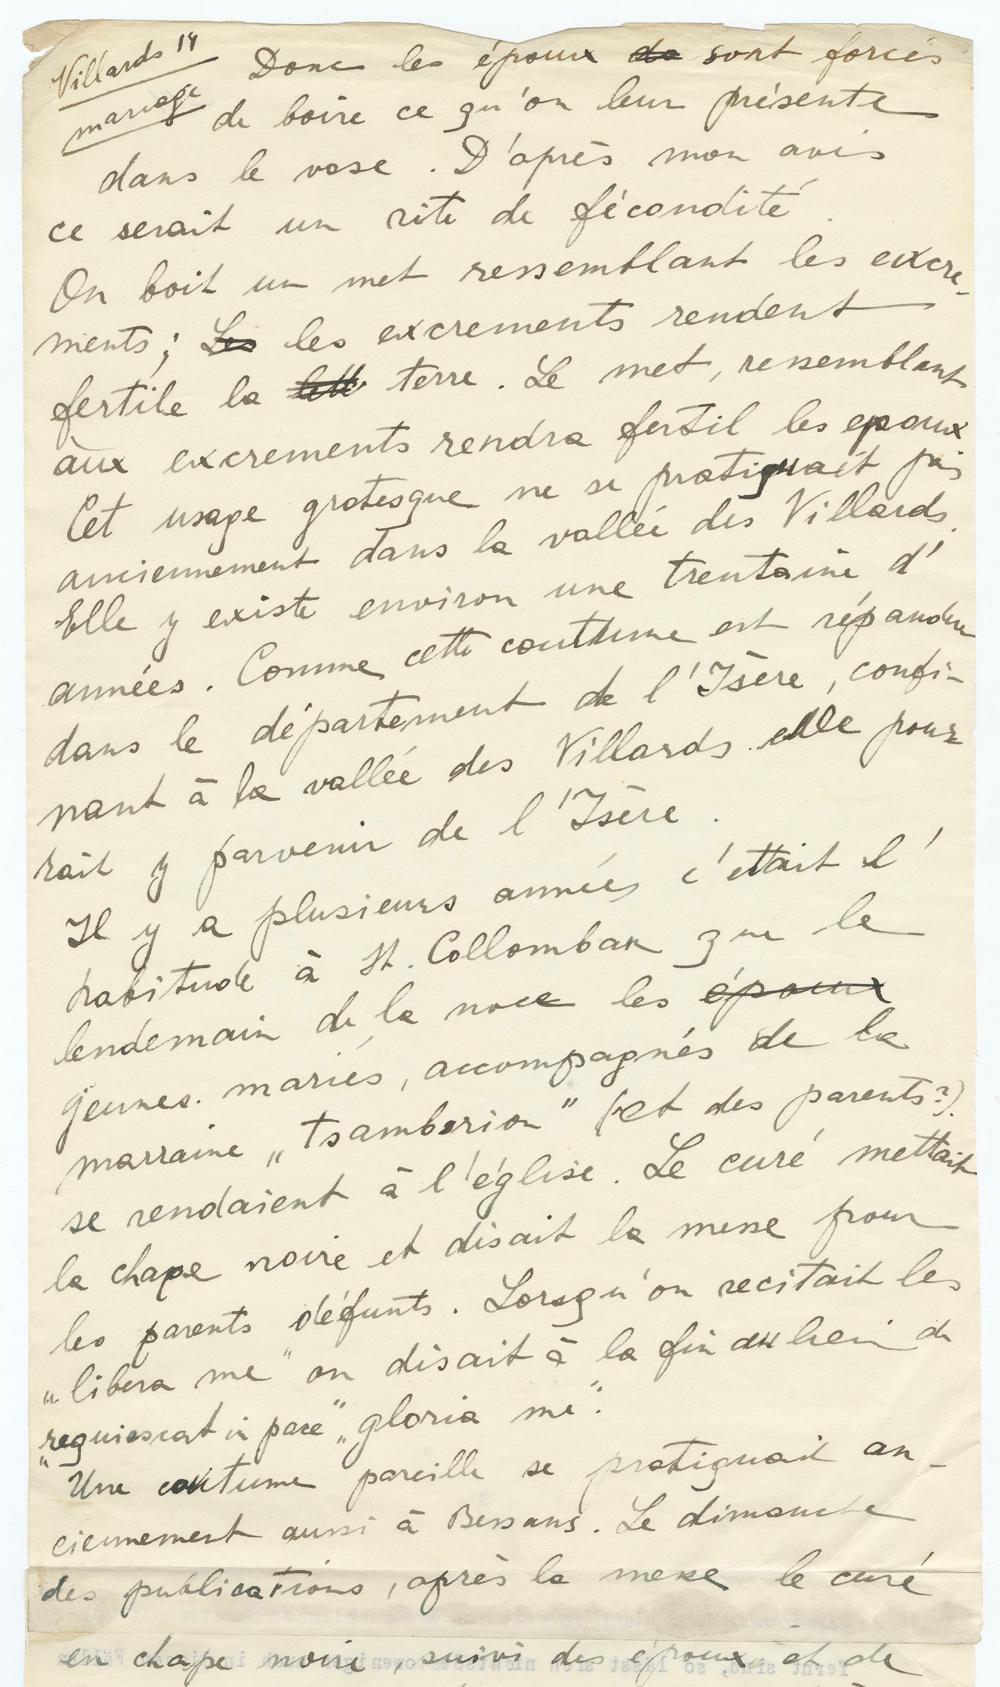 Villards 14
mariage
Donc les époux do sont forcés
de boire ce qu'on leur présente
dans le vase. D'après mon avis
ce serait un rite de fécondité.
On boit un met ressemblant les excre-
ments; Les les excrements rendent
fertile la terre. Le met, ressemblant
aux excrements rendra fertil les epoux
Cet usage grotesque ne se pratiquait pas
anciennement dans la vallée des Villards.
Elle y existe environ une trentaine d'
années. Comme cette couttume est répandue
dans le département de l'Isère, confi-
nant à la vallée des Villards elle pour
rait y parvenir de l'Isère.
Il y a plusieurs années c'ettait l'
habitude à St. Collomban que le
lendemain de la noce les époux
jeunes mariés, accompagnés de la
marraine „tsamberion" (et des parents?)
se rendaient à l'église. Le curé mettait
la chape noire et disait la messe pour
les parents défunts. Lorsqu'on recitait les
„libera me" on disait à la fin au lieu du
„requiescat in pace" „gloria me".
Une coutume pareille se pratiquait an-
ciennement aussi à Bessans. Le dimanche
des publications, après la messe le curé
en chape noire, suivi des époux et de